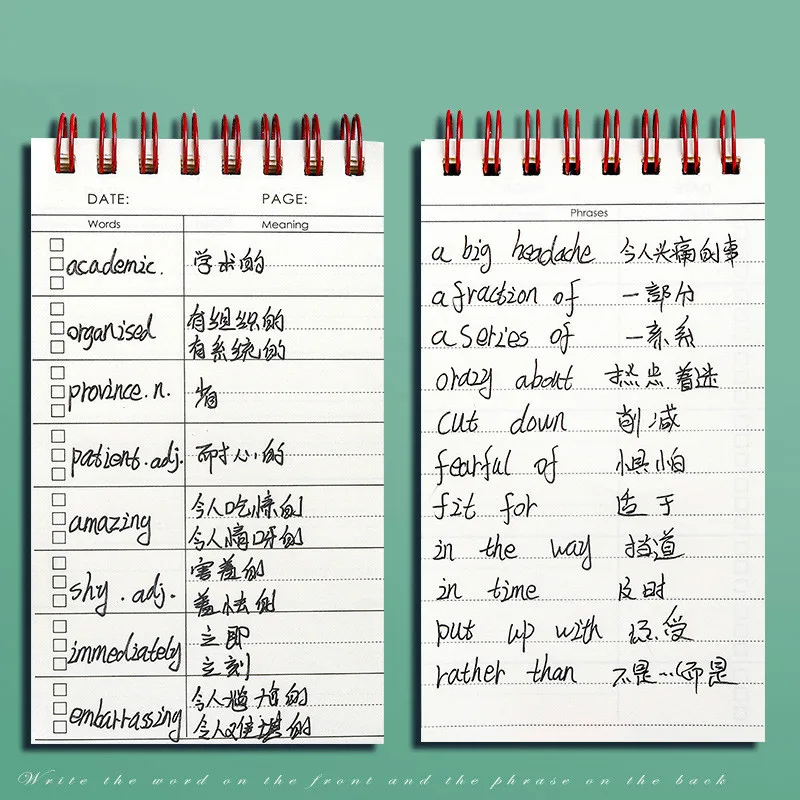 DATE: PAGE:
Words Meaning
academic. 学术的
organised 有组织的
有系统的
province.n. 省
patient.adj. 耐心的
amazing 令人吃惊的
令人惰呀的
shy.adj. 害羞的
羞怯的
immediately 立即
立刻
embarrassing 令人尴尬的
令人难堪的
Phrases
a big headache 令人头痛的事
a fraction of 一部分
a series of 一系系
crazy about 热忠 着迷
cut down 削减
fearful of 惧怕
fit for 适于
in the way 挡道
in time 及时
put up with 忍受
rather than 不是…而是
Write the word on the front and the phrase on the back